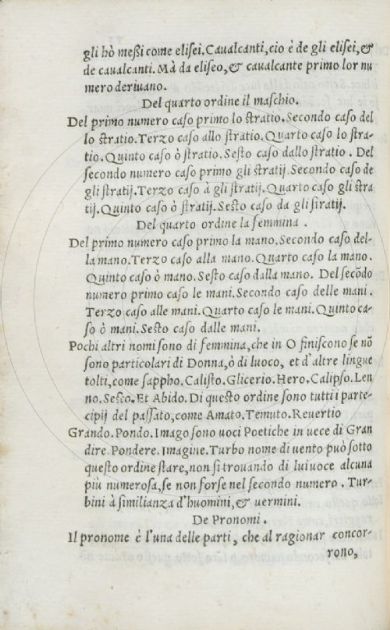 gli hò meßi come elisei. Cavalcanti, cio è de gli elisei, &
de cavalcanti. Mà da eliseo, & cavalcante primo lor nu
mero derivano.
Del quarto ordine il maschio.
Del primo numero caso primo lo stratio. Secondo caso del
lo stratio. Terzo caso allo stratio. Quarto caso lo stra-
tio. Quinto caso ò stratio. Sesto caso dallo stratio. Del
secondo numero caso primo gli stratij. Secondo caso de
gli stratij. Terzo caso à gli stratij. Quarto caso gli stra
tij. Quinto caso ò stratij. Sesto caso da gli stratij.
Del quarto ordine la femmina.
Del primo numero caso primo la mano. Secondo caso del-
la mano. Terzo caso alla mano. Quarto caso la mano.
Quinto caso ò mano. Sesto caso dalla mano. Del secōdo
numero primo caso le mani. Secondo caso delle mani.
Terzo caso alle mani. Quarto caso le mani. Quinto ca-
so ò mani. Sesto caso dalle mani.
Pochi altri nomi sono di femmina, che in O finiscono se nō
sono particolari di Donna, ò di luoco, et d'altre lingue
tolti, come sappho. Calisto. Glicerio. Hero. Calipso. Len
no. Sesto. Et Abido. Di questo ordine sono tutti i parte-
cipij del passato, come Amato. Temuto. Revertio
Grando. Pondo. Imago sono voci Poetiche in vece di Gran
dire. Pondere. Imagine. Turbo nome di vento può sotto
questo ordine stare, non si trovando di lui voce alcuna
più numerosa, se non forse nel secondo numero. Tur-
bini à similianza d'huomini, & vermini.
De Pronomi.
Il pronome è l'una delle parti, che al ragionar concor-
rono,